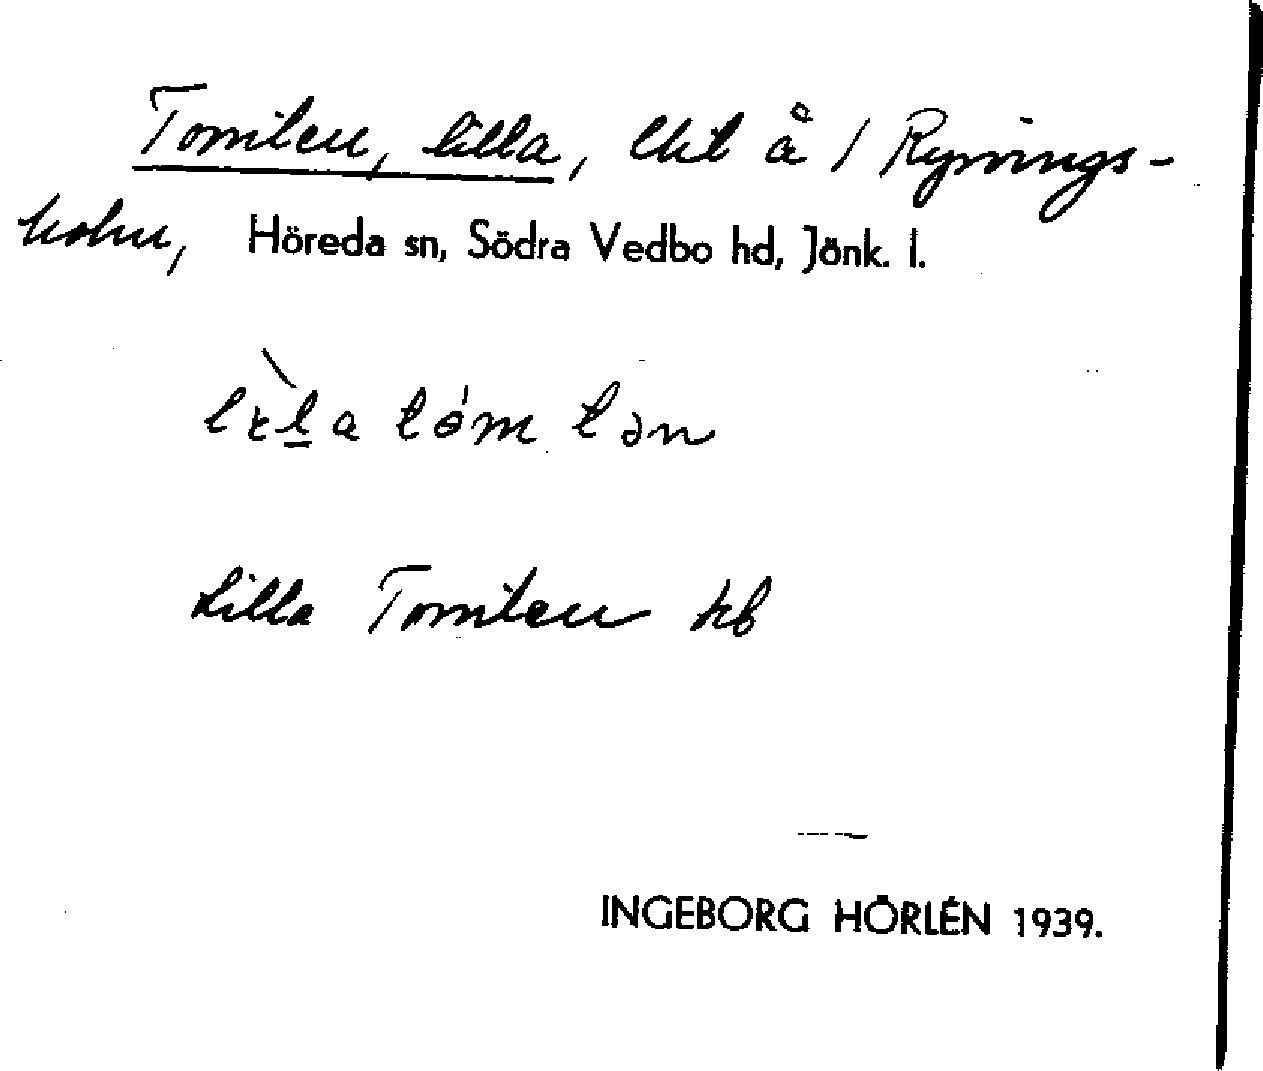 Tomten, lilla, lht å 1 Rynings-
holm, Höreda sn, Södra Vedbo hd, Jönk. l.
lìl̲a tómtən
Lilla Tomten kb
INGEBORG HÖRLÉN 1939.